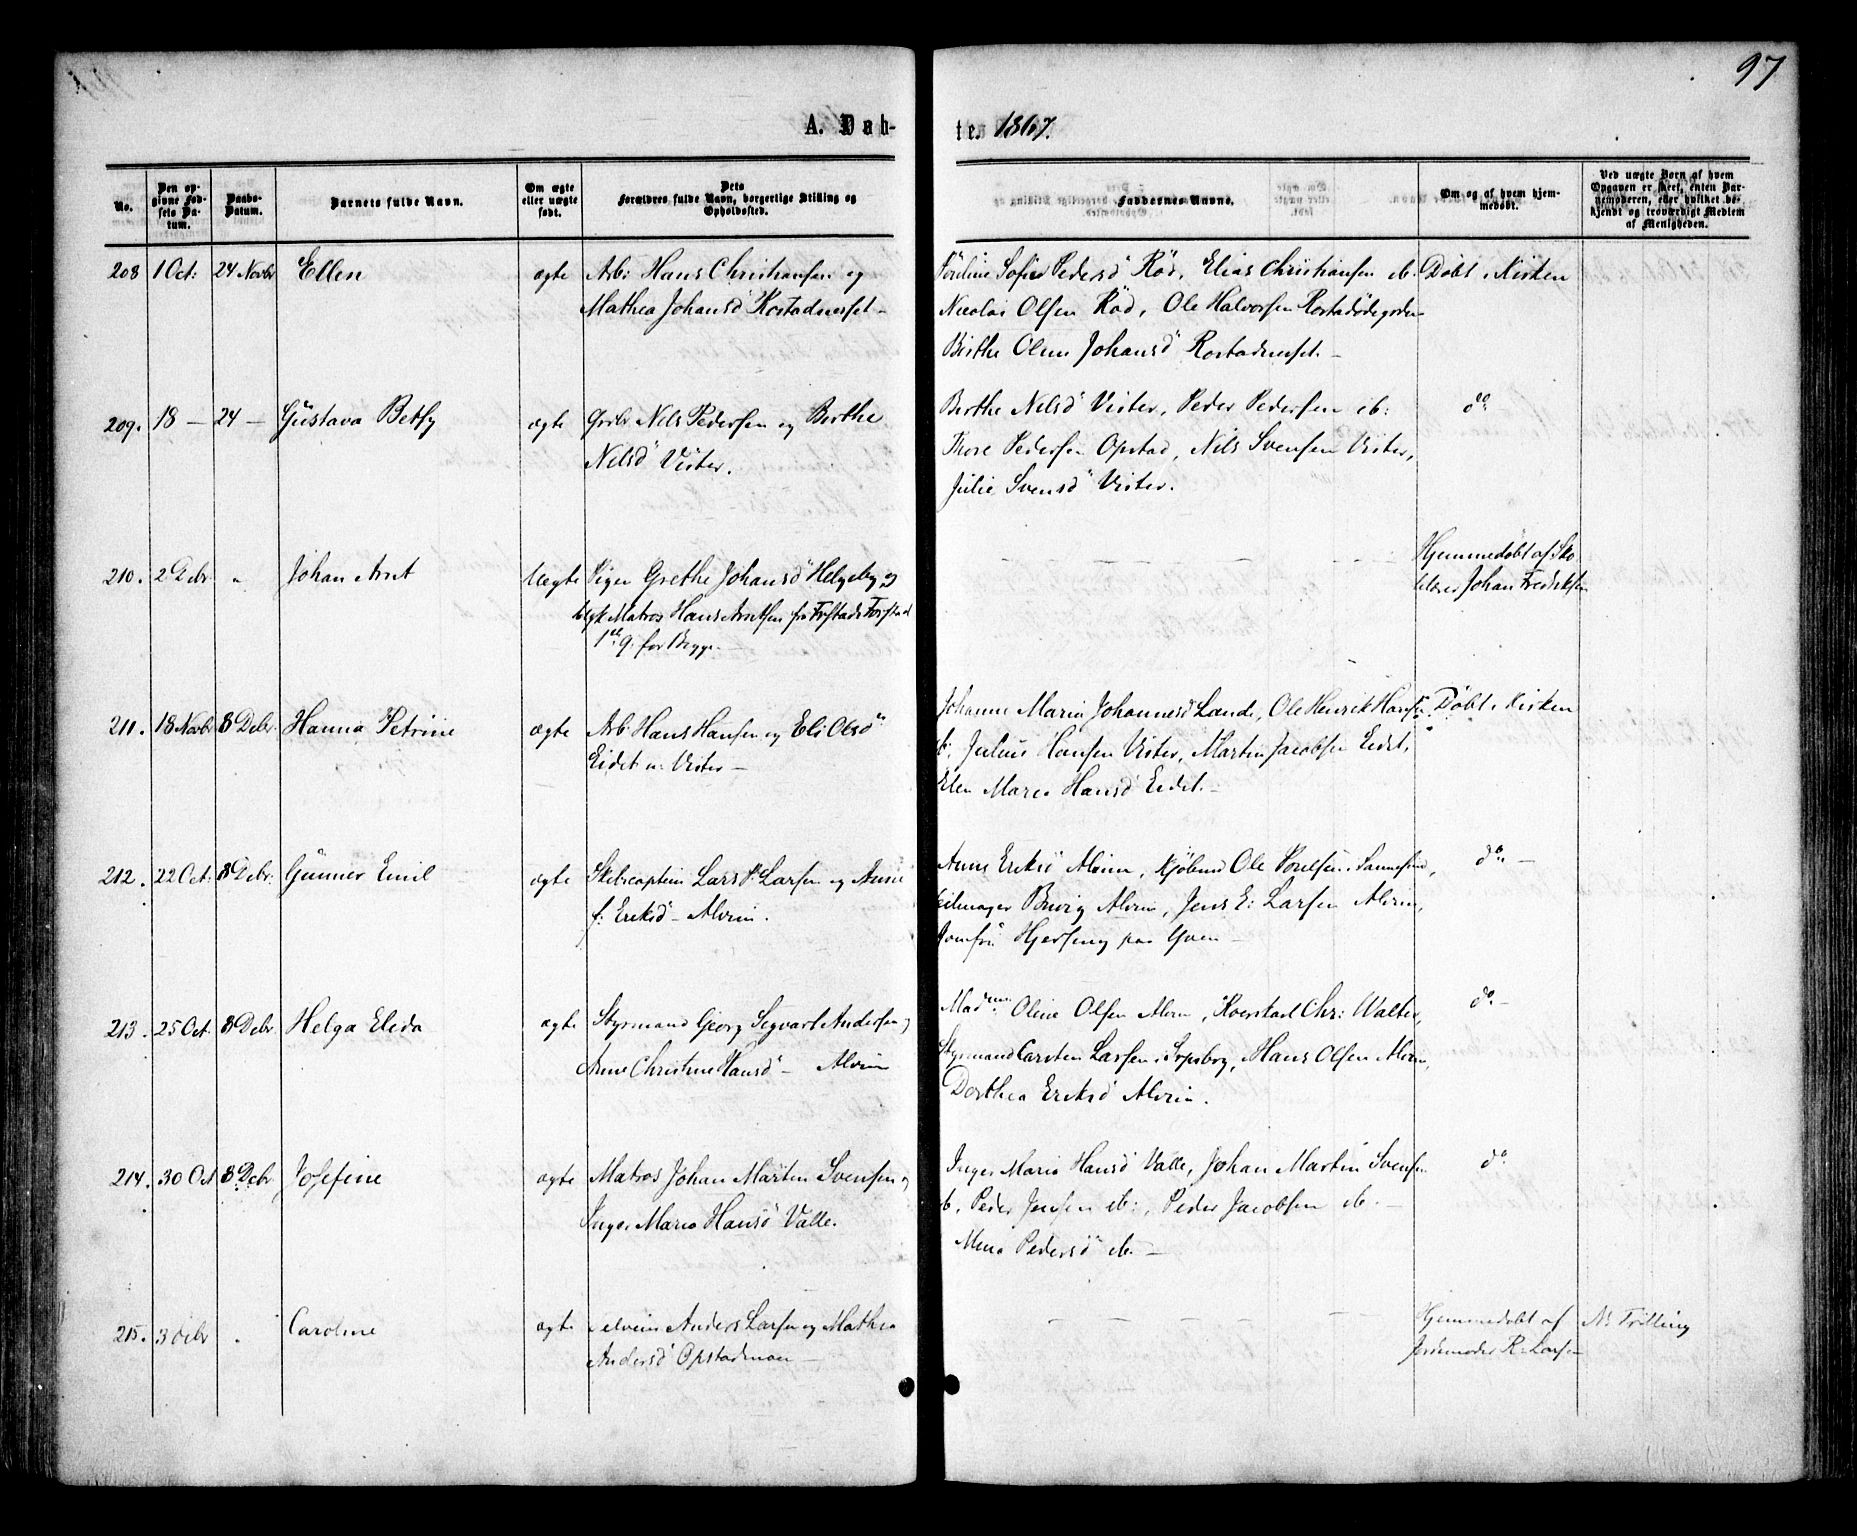 97
A. Døb- te. 1867.
No. Den opgivne Fødsels Datum. Daabs-Datum. Barnets fulde Navn. Om ægte eller uægte født. Dets Forældres fulde Navn, borgerlige Stilling og Opholdssted. Faddernes Navne. Om og af hvem hjemmedøbt. Ved uægte Børn af hvem Opgaven er skeet, enten Barnemoderen, eller hvilket bekjendt og troværdigt Medlem af Menigheden.
208 1 Oct: 24 Novbr Ellen ægte Arb: Hans Christiansen og
Mathea Johansd Rostadnesset -
Sofie Pedersd Rød, Elias Christiansen ib. Døbt i Kirken
Nicolai Olsen Rød, Ole Halvorsen Rostadødegorden
Birthe Oline Johansd Rostadnesset. -
209. 18 — 24 — Gustava Betsy ægte Grbr Nils Pedersen og Berthe
Nilsd Vister.
Berthe Nilsd Vister, Peder Pedersen ib: do
Thore Pedersen Opstad, Nils Svensen Vister,
Julie Svensd Vister.
210. 2 Debr " Johan Arnt Uægte Pigen Grethe Johansd Helgeby og
Ugk Matros Hans Arntsen fra Frstads Forstad
1ste G. for Begge. -
Hjemmedøbt af Sko
lelærer Johan Fredriksen
211. 18 Novbr 8 Debr. Hanna Petrine ægte Arb: Hans Hansen og Eli Olsd
Eidet u: Vister —
Johanne Maria Johannesd Lande, Ole Henrik Hansen Døbt i Kirken
ib. Julius Hansen Vister, Martin Jacobsen Eidet,
Elen Maria Hansd Eidet. -
212. 22 Oct: 8 Debr: Gunner Emil ægte Skibscaptein Lars P. Larsen og Anne
f. Eriksd - Alvim.
Anne Eriksd Alvim, Kjøbmd Ole i Sannesund, do —
Seilmager Alvim, Jens E: Larsen Alvim,
Jomfru paa Yven —
213. 25 Oct. 8 Debr. Helga Elida ægte Styrmand Georg Segvart Andersen og
Anne Christine Hansd — Alvim
Madme Oline Olsen Alvim, Chr: Walter, do —
Styrmand Carsten Larsen i Srpsborg, Hans Olsen Alvim,
Dorthea Eriksd Alvim.
214. 30 Oct 8 Debr Josefine ægte Matros Johan Martin Svensen og
Inger Maria Hansd Valle.
Inger Maria Hansd Valle, Johan Martin Svensen do
ib. Peder Jensen ib:, Peder Jacobsen ib. —
Mina Pedersd ib. —
215. 3 Debr " Caroline ægte Anders Larsen og Mathea
Andersd Opstadmoen —
Hjemmedøbt af
Jordmoder R. Larsen
N: Trilling